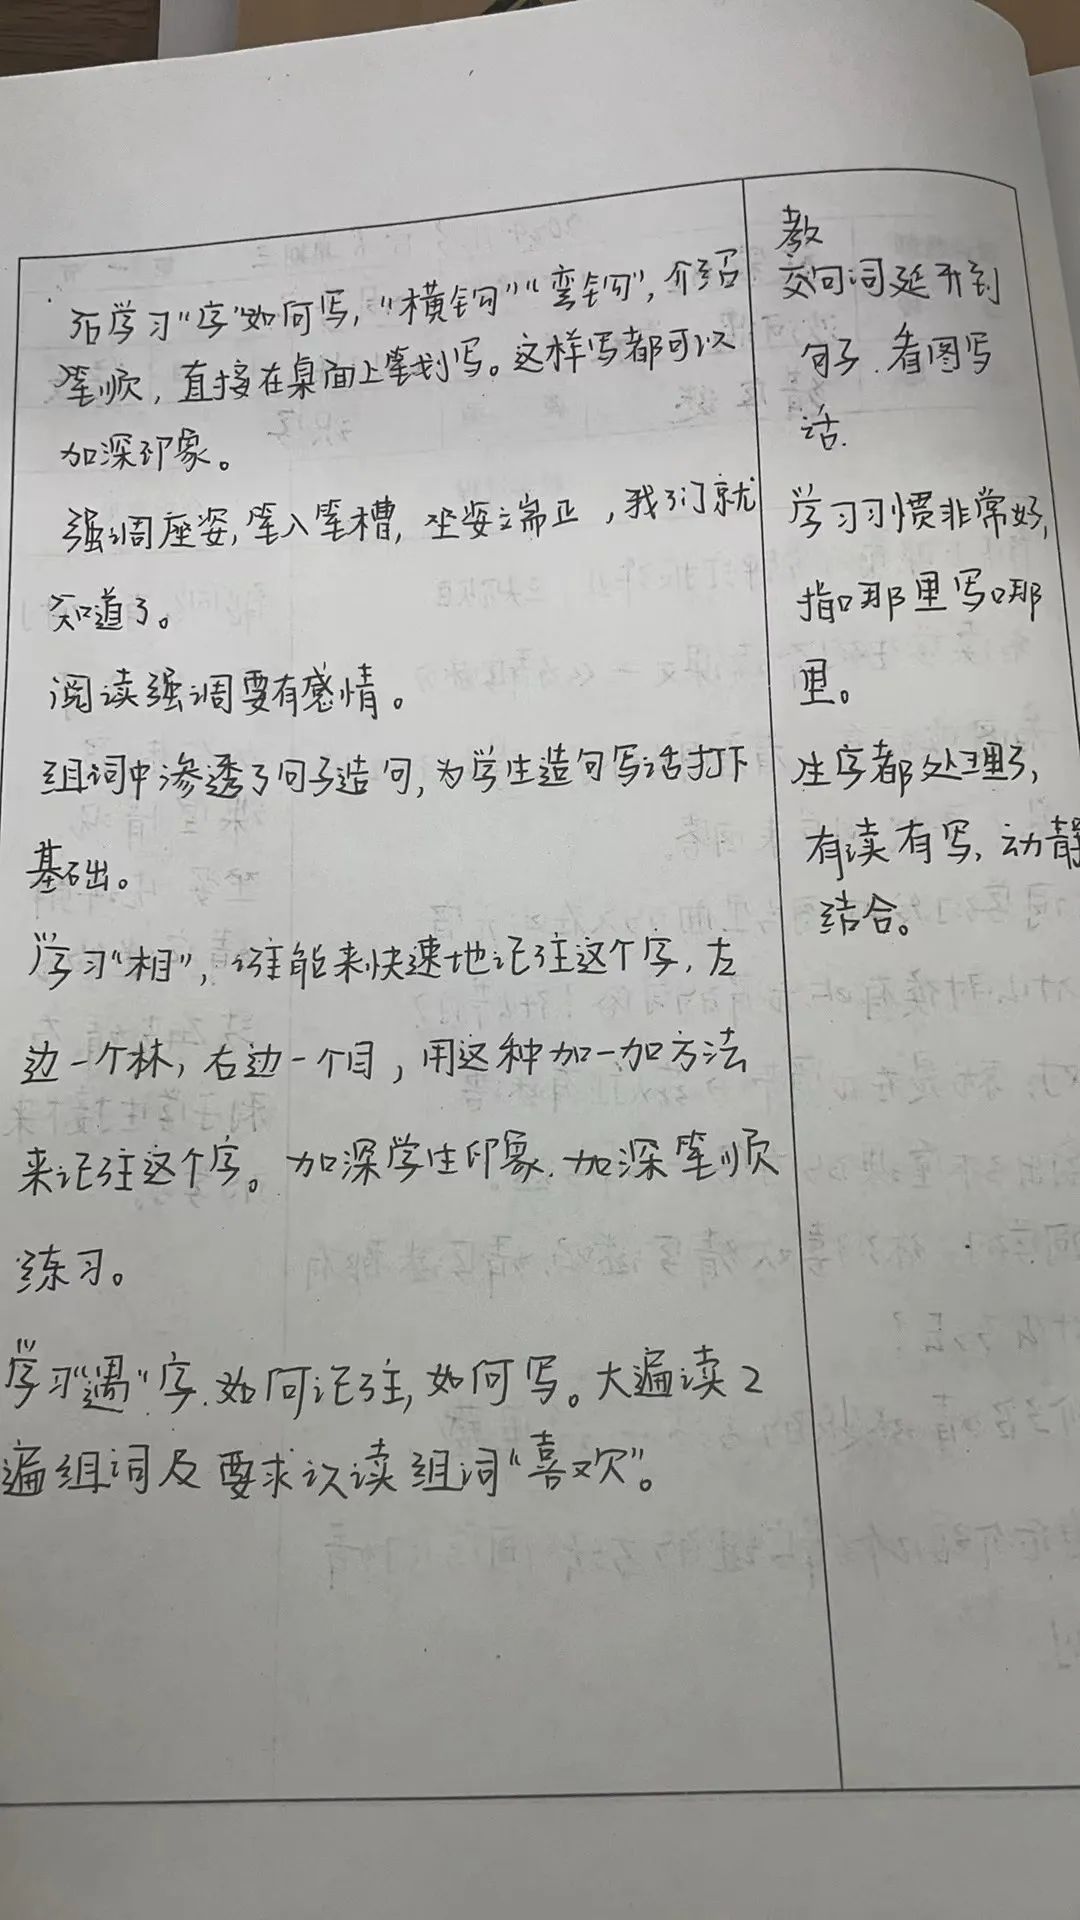 后学习“字”如何写，“横钩”“弯钩”，介绍
笔顺，直接在桌面上笔划写。这样写都可以
加深印象。
强调座姿，笔入笔槽，坐姿端正，我们就
知道了。
阅读强调要有感情。
组词中渗透了句子造句，为学生造句写话打下
基础。
学习“相”，谁能来快速地记住这个字，左
边一个林，右边一个目，用这种加一加方法
来记住这个字。加深学生印象.加深笔顺
练习。
学习“遇”字.如何记住，如何写。大遍读2
遍组词及要求认读组词“喜欢”。
教
交句词延开到
句子.看图写
话.
学习习惯非常好，
指哪里写哪
里。
生字都处理了，
有读有写，动静
结合。